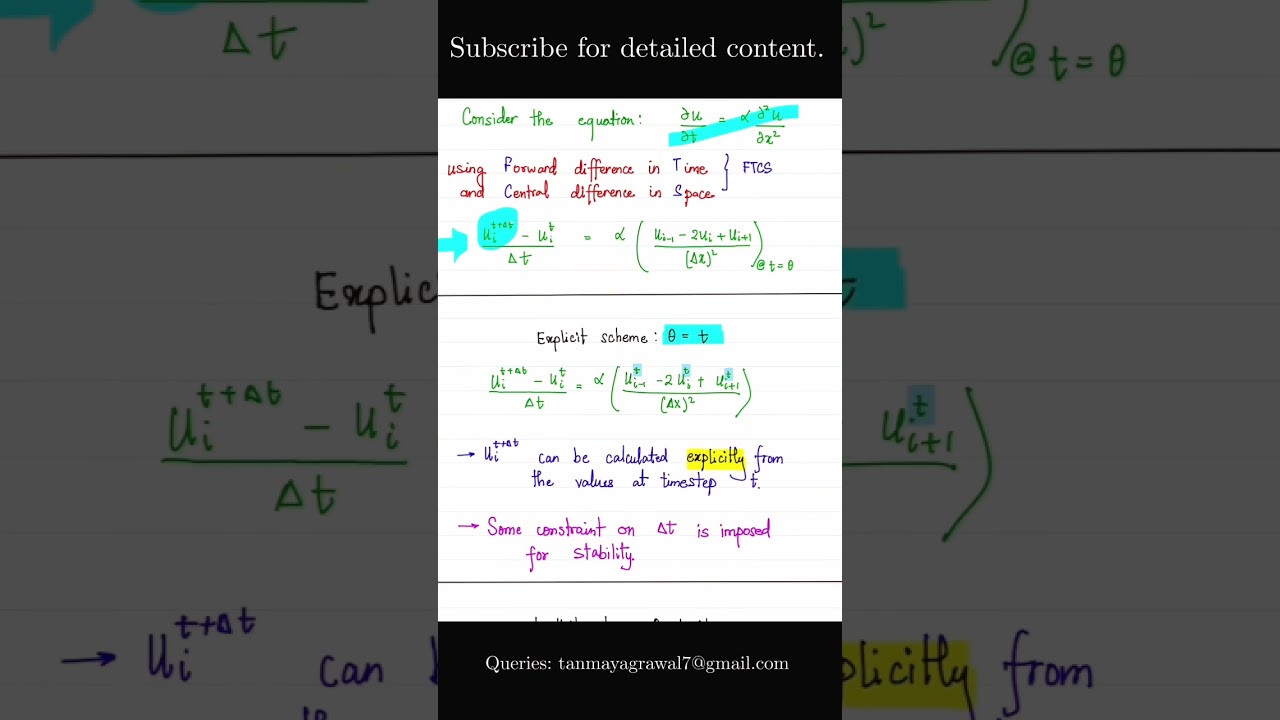 Subscribe for detailed content.
Consider the equation: ∂u/∂t = α ∂²u/∂x²
using Forward difference in Time
and Central difference in Space } FTCS
(u_i^{t+Δt} - u_i^t)/Δt = α ((u_{i-1} - 2u_i + u_{i+1})/(Δx)²)_{@ t = θ}
Explicit scheme: θ = t
(u_i^{t+Δt} - u_i^t)/Δt = α ((u_{i-1}^t - 2u_i^t + u_{i+1}^t)/(Δx)²)
→ u_i^{t+Δt} can be calculated explicitly from
the values at timestep t.
→ Some constraint on Δt is imposed
for stability.
Queries: tanmayagrawal7@gmail.com